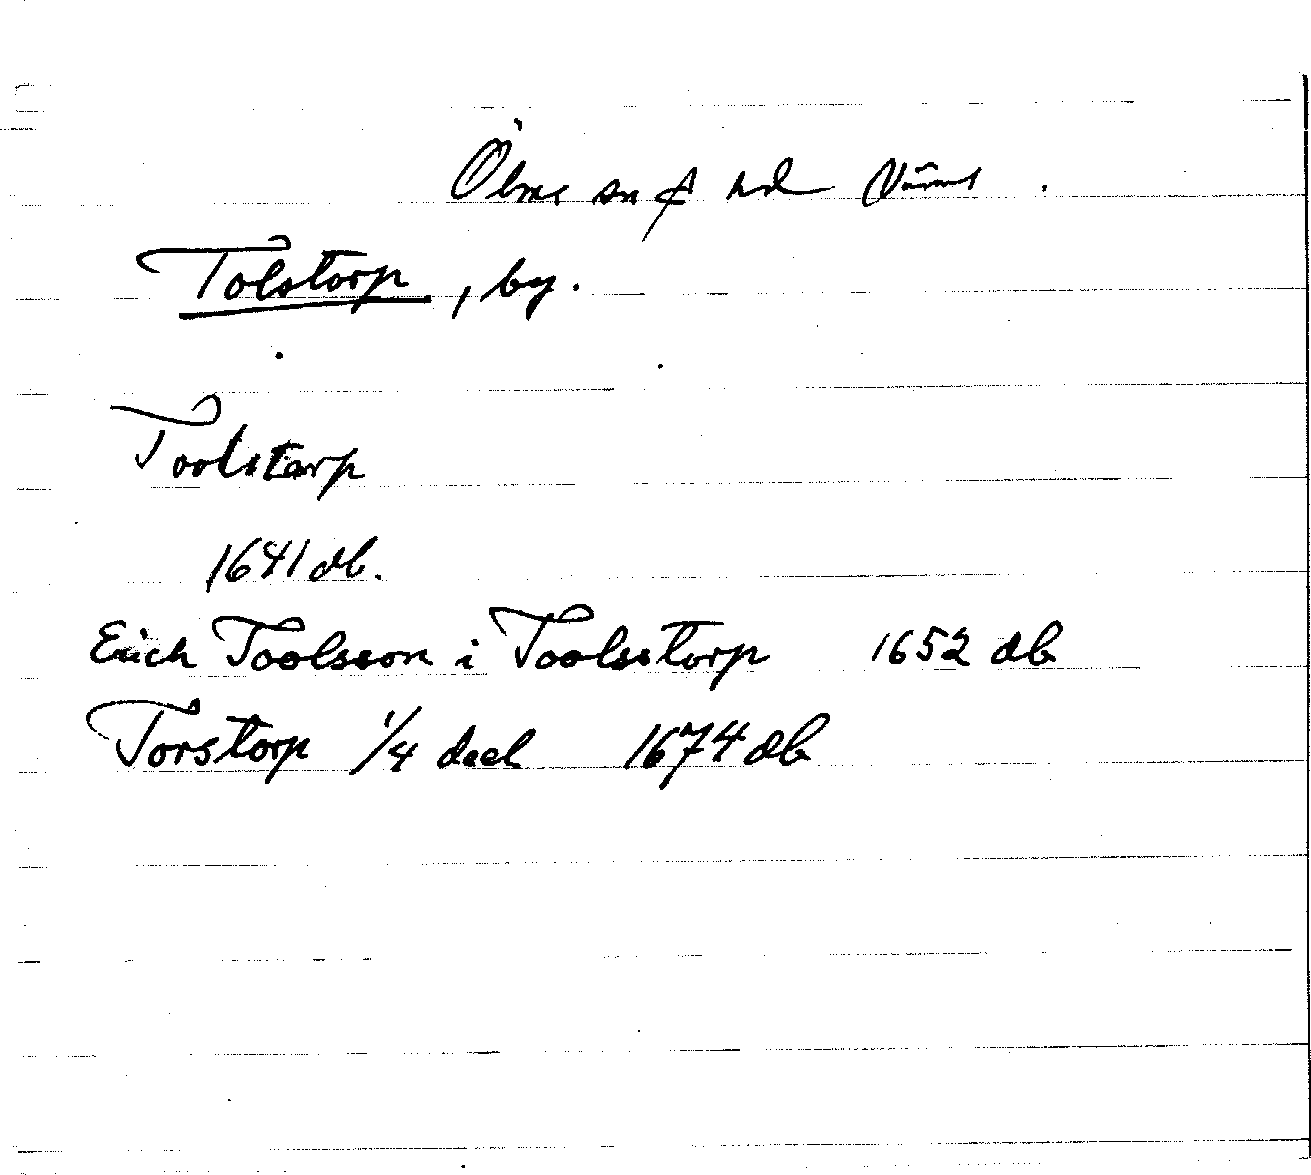 Ölme sn o hd Värml.
Tolstorp, by.
Toolstorp
1641 db.
Erich Toolsson i Toolsstorp 1652 db
Torstorp 1/4 deel 1674 db